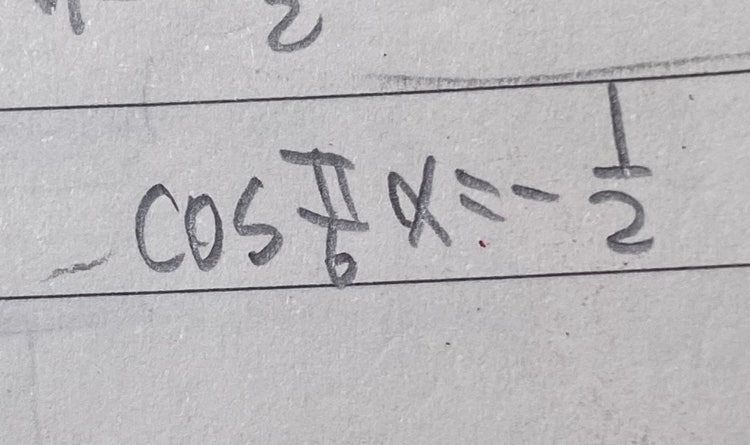 2
cos π/6 x = - 1/2